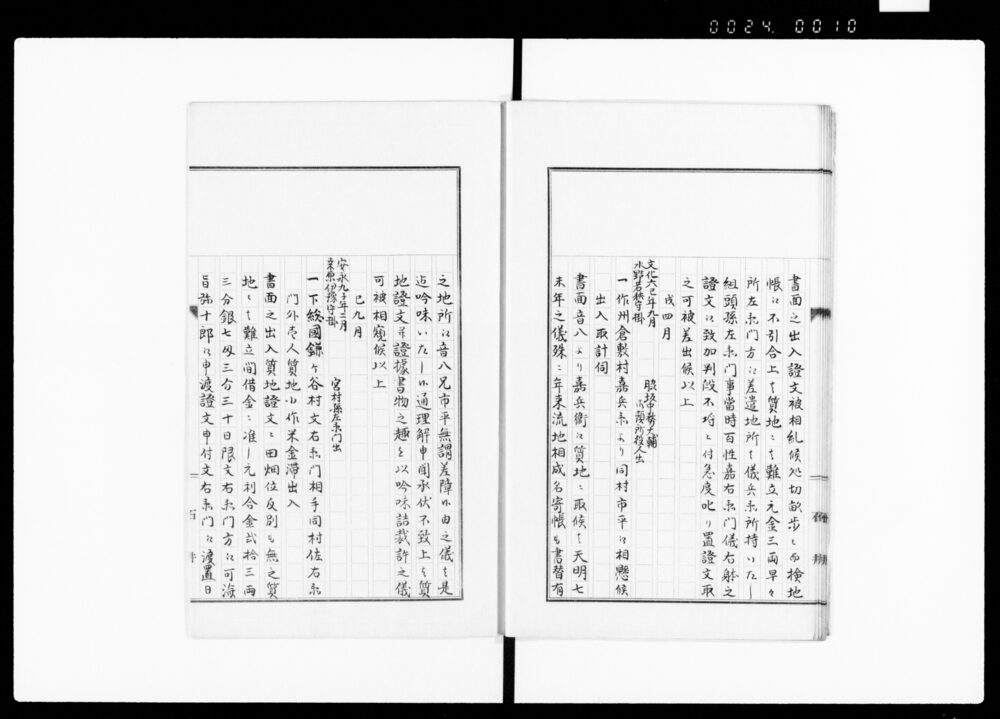 0024. 0010
書面之出入證文被相糺候処切畝歩ニ而検地
帳江不引合上者質地ニ者難立元金三両早々
所左衛門方江差遣地所者儀兵衛所持いたし
組頭孫左衛門事當時百性嘉右衛門儀右躰之
證文江致加判段不埒ニ付急度叱り置證文取
之可被差出候以上
戌四月
文化六巳年九月
水野若狭守掛
脇坂中務大輔
役人出
一作州倉敷村嘉兵衛より同村市平江相懸候
出入取計伺
書面音八より嘉兵衛江質地ニ取候者天明七
未年之儀殊ニ年来流地相成名寄帳も書替有
之地所江音八兄市平無謂差障候由之儀者是
迄吟味いたし候通理解申聞承伏不致上者質
地證文并證據書物之趣を以吟味詰裁許之儀
可被相窺候以上
巳九月
安永九子年三月
桑原伊豫守掛
宮村孫左衛門出
一下総國鎌ヶ谷村文右衛門相手同村佐右衛
門外壱人質地小作米金滞出入
書面之出入質地證文ニ田畑位反別も無之質
地ニ者難立間借金ニ准し元利合金弐拾三両
三分銀七匁三分三十日限文右衛門方江可済
旨弥十郎江申渡證文申付文右衛門江渡置日